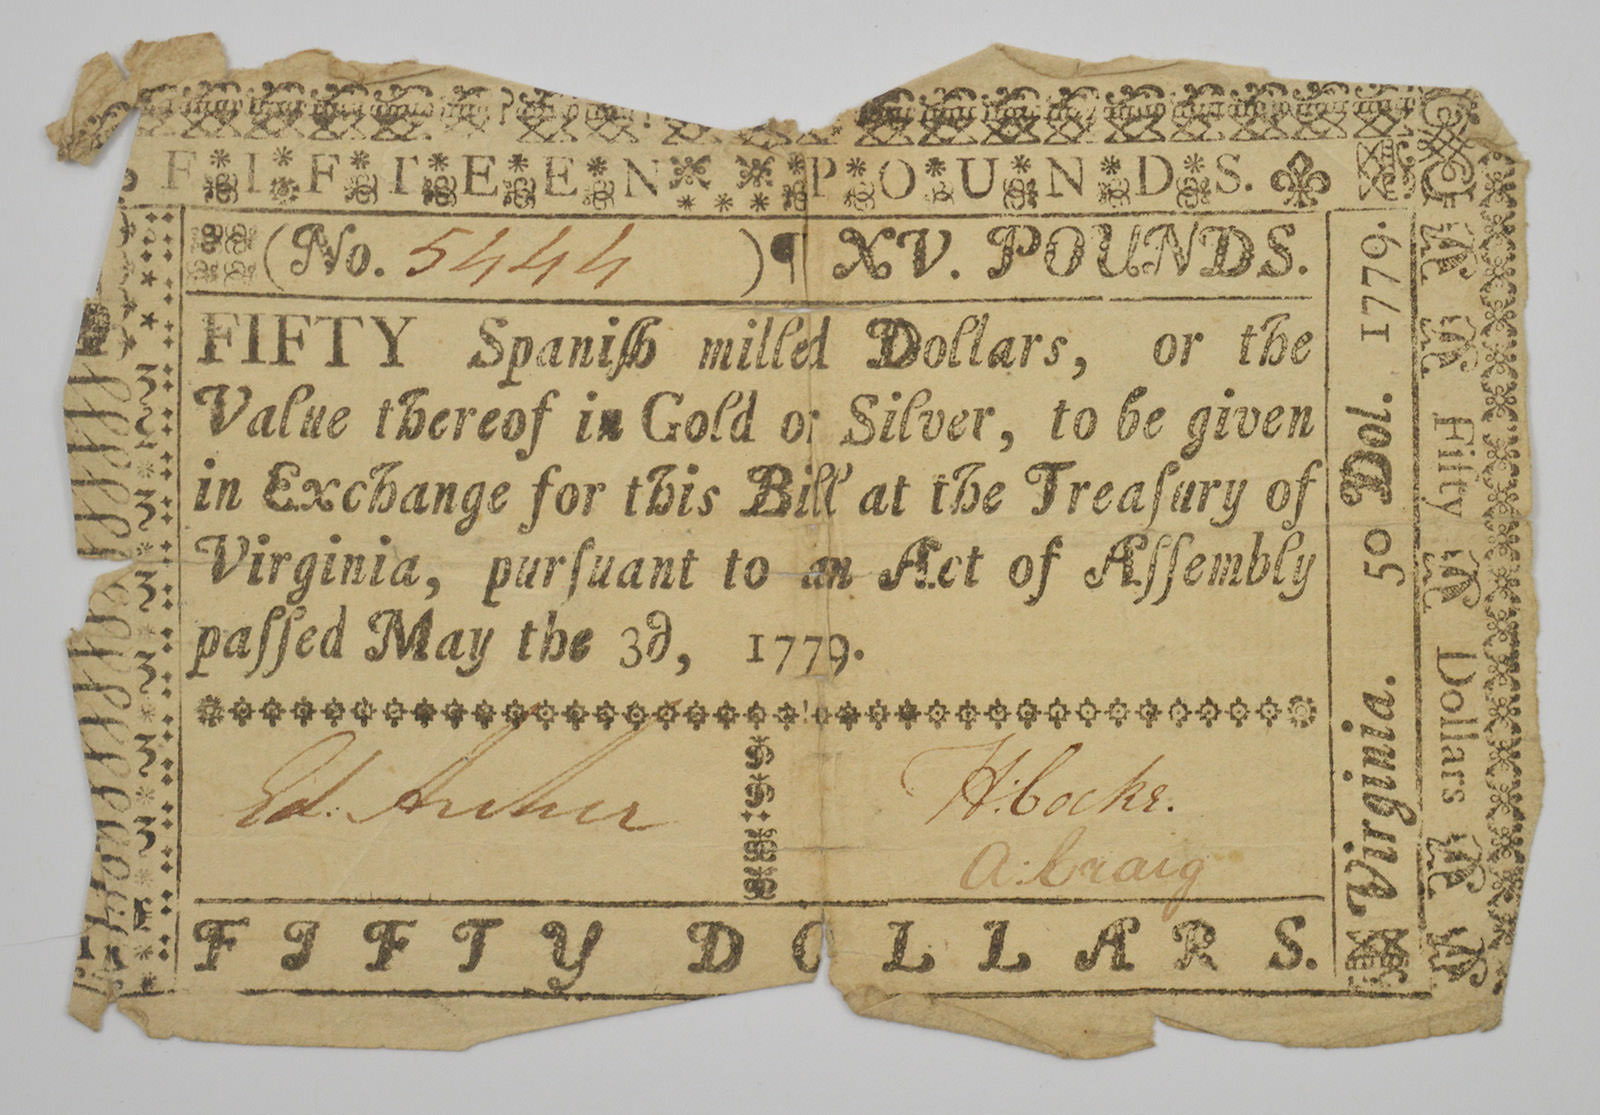 FIFTEEN POUNDS.
(No. 5444 )¶ XV. POUNDS.
FIFTY Spaniſh milled Dollars, or the
Value thereof in Gold or Silver, to be given
in Exchange for this Bill at the Treaſury of
Virginia, purſuant to an Act of Aſſembly
paſſed May the 3d, 1779.
Ed. Archer
H: Cocke.
A: Craig
FIFTY DOLLARS.
Virginia. 50 Dol. 1779.
Fifty Dollars